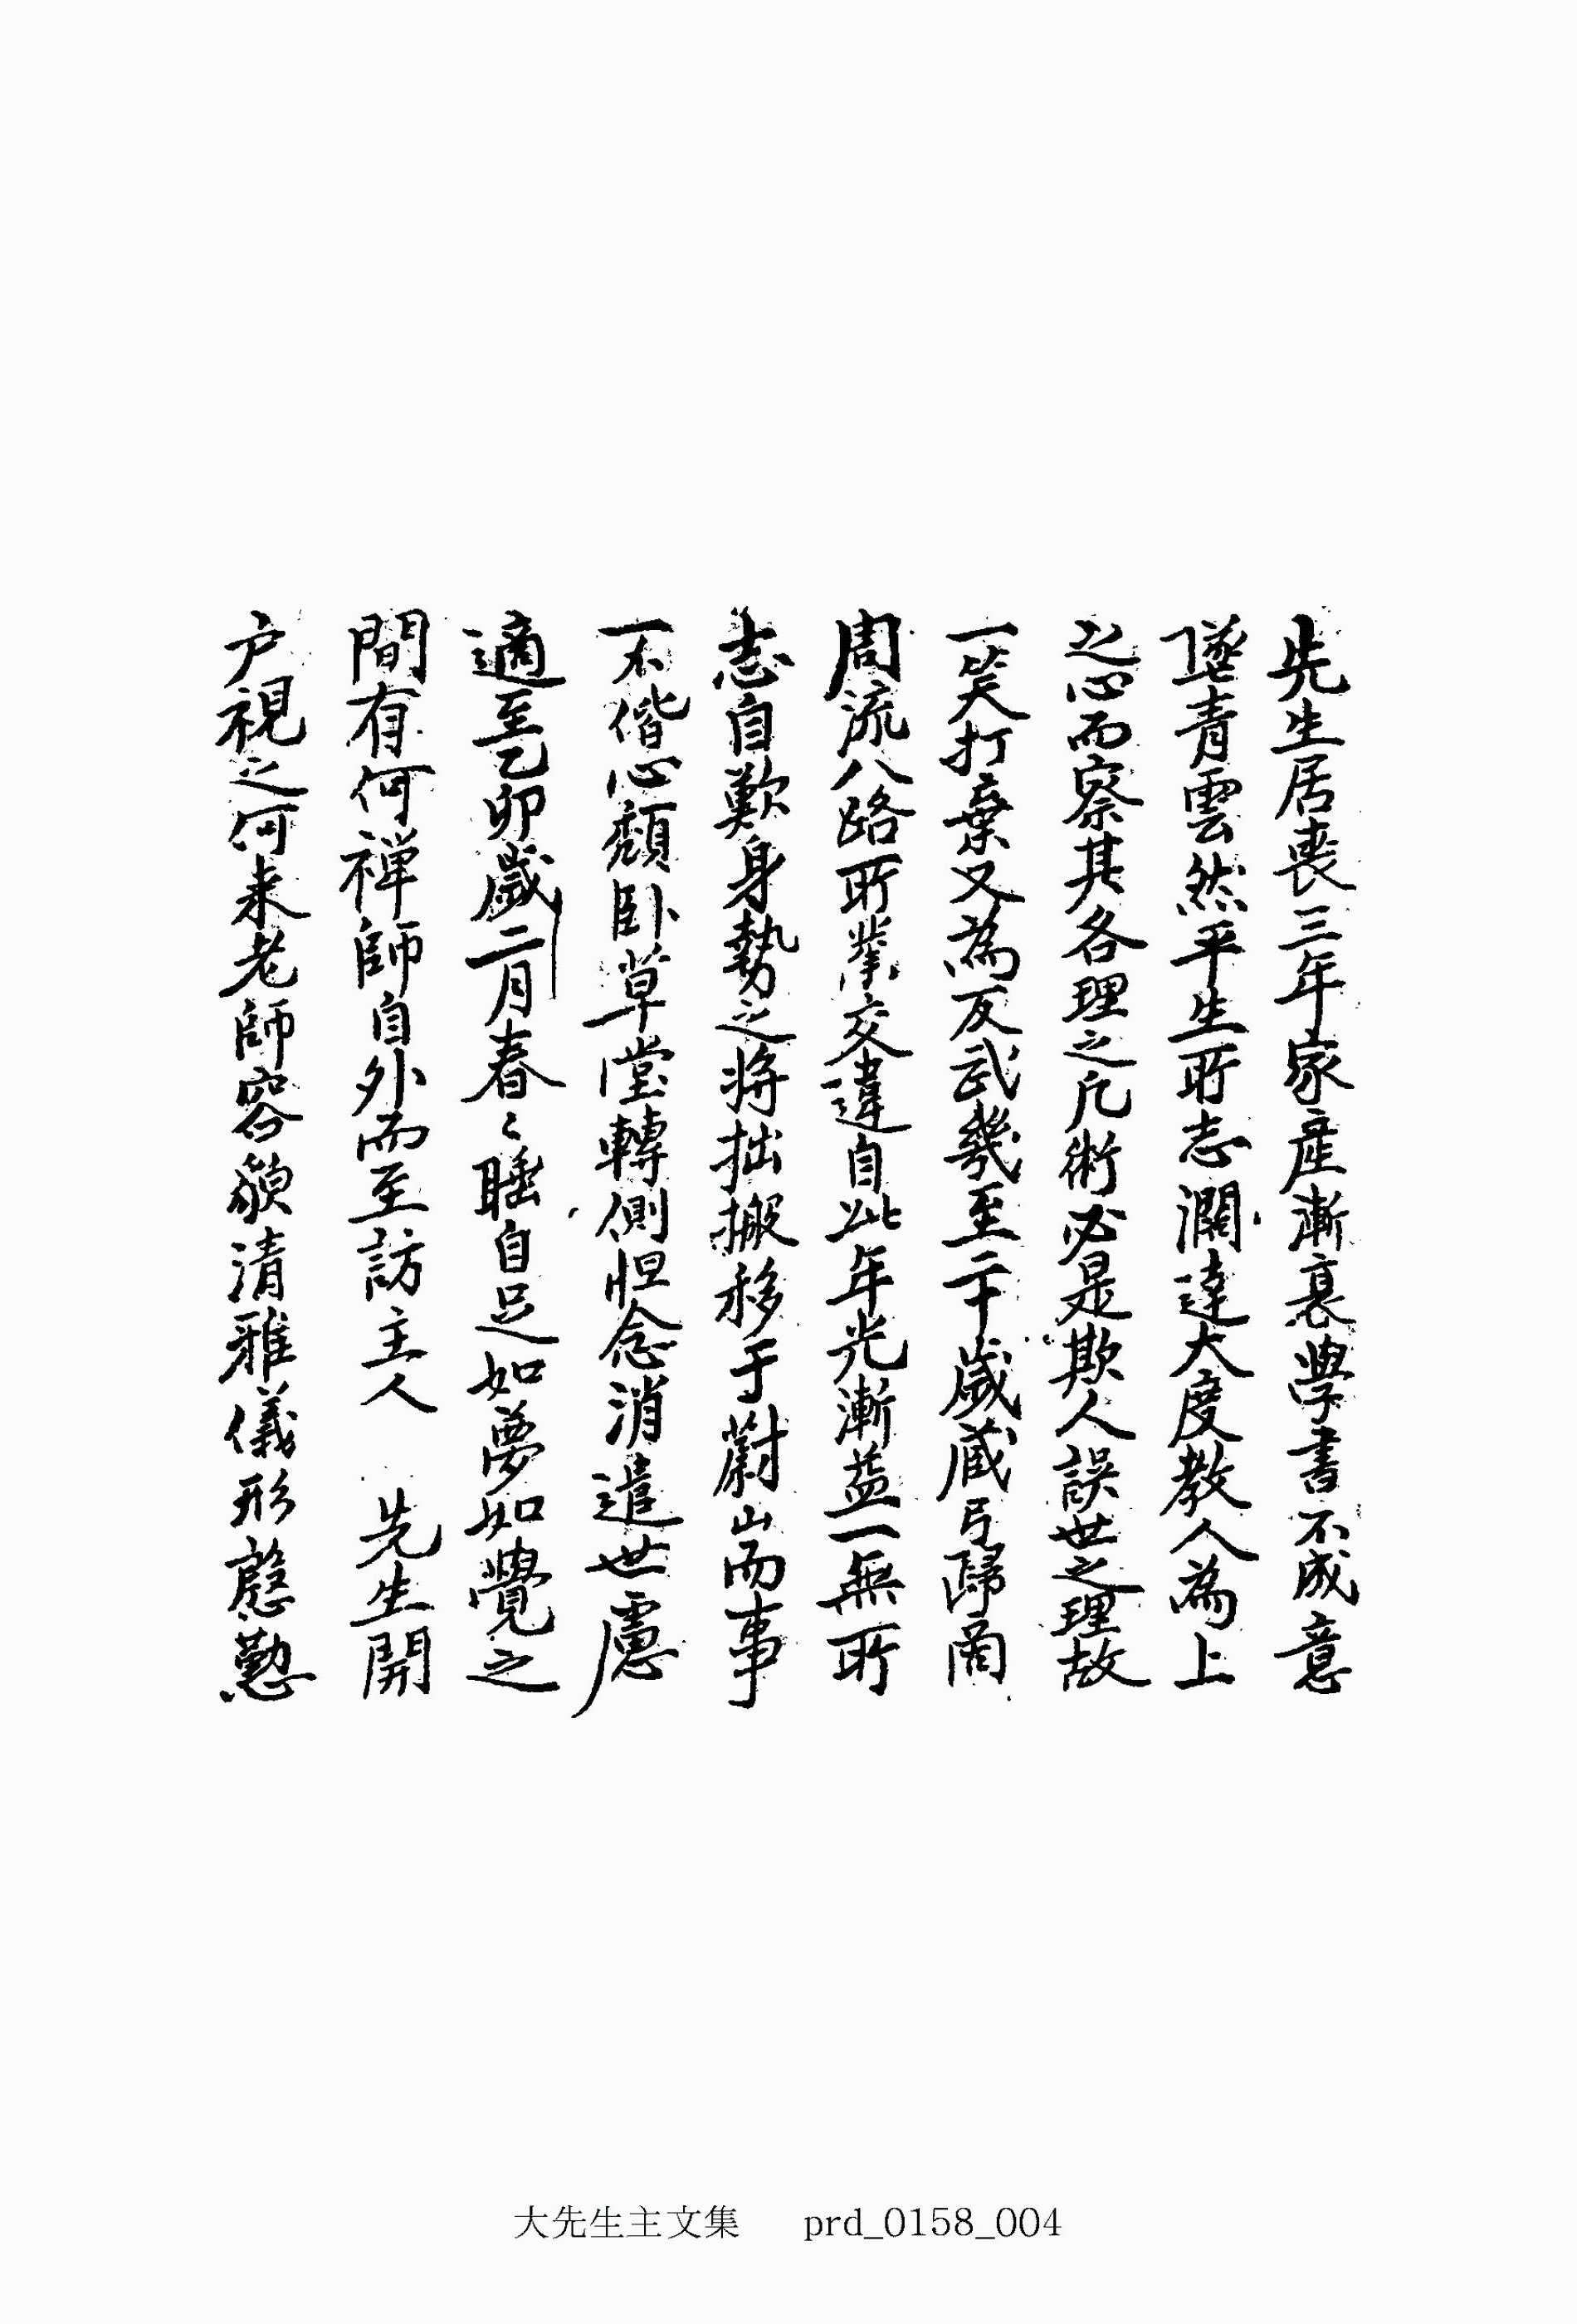 先生居喪三年家産漸衰學書不成意
墜青雲然平生所志濶達大度教人為上
之心而察其各理之凡術必是欺人誤世之理故
一笑打棄又為反武幾至二十歲藏弓歸商
周流八路所業交違自此年光漸益一無所
志自歎身勢之將拙搬移于蔚山而事
一不偕心頹卧草堂轉側怛念消遣世慮
適至乙卯歲二月春〻睡自足如夢如覺之
間有何禅師自外而至訪主人 先生開
户視之何来老師容貌清雅儀形慇懃
大先生主文集 prd_0158_004